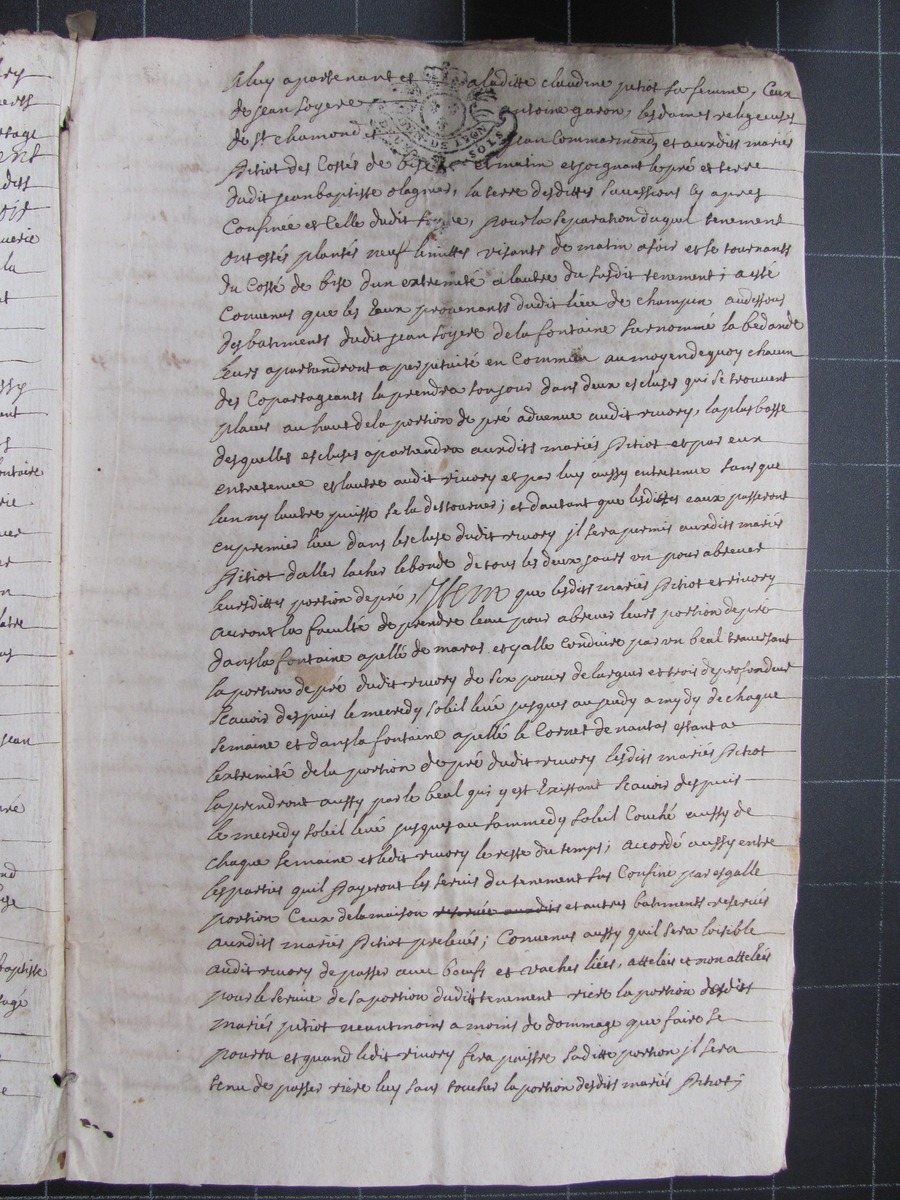 a luy apartenant et a laditte claudine pitiot sa femme, Ceux
de jean soyere antoine garon, les dames religieuses
de st chamond et jean Commarmond, et auxdits mariés
pitiot des Costés de bize et matin et joignant le pré et terre
dudit jean baptiste olagnier, la terre desdittes successions cy apres
Confinée et Celle dudit soyere, pour la separation duquel tenement
ont estés plantés neuf limittes visants de matin a soir et se tournants
du Costé de bise d'un extremité a lautre du susdit tenement; a esté
Convenus que les Eaux provenants dudit lieu de champin audessous
des batiments dudit jean soyere de la fontaine surnommé la bedande
leurs apartiendront a perpetuité en Commun au moyen dequoy chacun
des Copartageants la prendra toujour dans deux escluses qui se trouvent
places au haut de la portion de pré advenue audit rivory, la plus basse
desquelles escluses apartiendra auxdits mariés pitiot et par eux
entretenue et lautre audit rivory et par luy aussy entretenue sans que
lun ny lautre puisse se la destourner; et dautant que lesdittes eaux passeront
en premier lieu dans lescluse dudit rivory jl sera permis auxdits mariés
pitiot daller lacher lebonde de tous les deux jours un pour abreuer
leursdittes portion de pré, Jtem que lesdits mariés pitiot et rivory
auront la faculté de prendre leau pour abreuer leurs portion de pré
dans la fontaine apellé de maras et qalle Conduire par un beal traversant
la portion de pré dudit rivory de six pouces de largeur et trois de profondeur
scavoir despuis le mecredy soleil levé jusques au jeudy a mydy de chaque
semaine et dans la fontaine apellé le Cornet de nantas estant a
lextremité de la portion de pré dudit rivory lesdits mariés pitiot
la prendront aussy par le beal qui y est Existant scavoir despuis
le mecredy soleil levé jusques au sammedy soleil Couché aussy de
chaque semaine et ledit rivory le reste du temps; accordé aussy entre
les parties quil payeront les servis du tenement sus Confiné par esgalle
portion Ceux de la maison reservée auxdits et autres batiments reservés
auxdits mariés pitiot prelevés; Convenus aussy quil sera loisible
audit rivory de passer avec boeufs et vaches liées, attelées et non attelées
pour le service de sa portion dudit tenement riere la portion desdits
mariés pitiot neantmoins a moins de dommage que faire se
pourra et quand ledit rivory fera paistre saditte portion jl sera
tenu de passer riere luy sans toucher la portion desdits mariés pitiot;